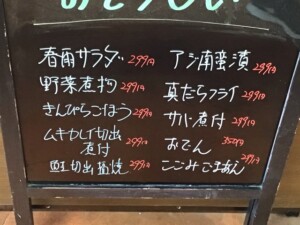 春雨サラダ 299円
野菜煮物 299円
きんぴらごぼう 299円
ムキカレイ切出
煮付 299円
切出塩焼 299円
アジ南蛮漬 299円
真だらフライ 299円
サバ煮付 299円
おでん 350円
こごみごまあん 299円